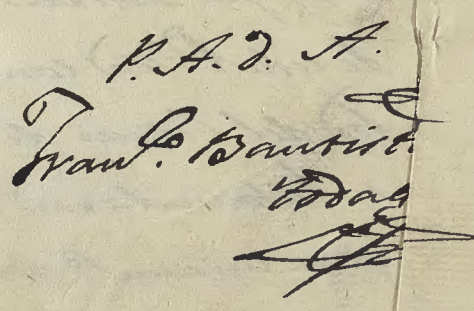 P. A. d. A.
Franco. Bautist